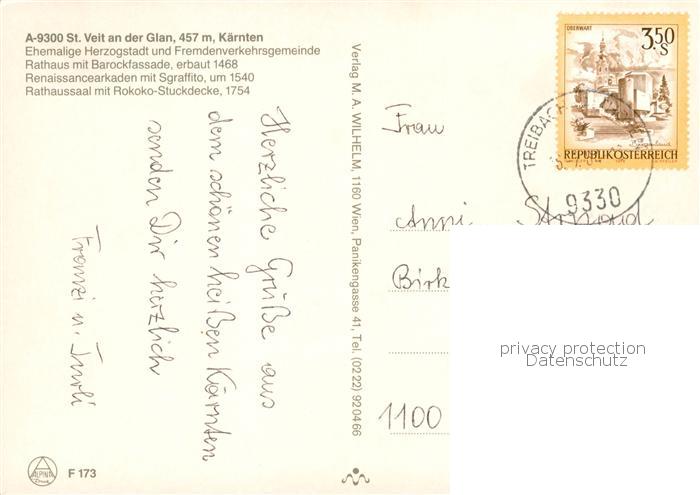 A-9300 St. Veit an der Glan, 457 m, Kärnten
Ehemalige Herzogstadt und Fremdenverkehrsgemeinde
Rathaus mit Barockfassade, erbaut 1468
Renaissancearkaden mit Sgraffito, um 1540
Rathaussaal mit Rokoko-Stuckdecke, 1754
Herzliche Grüße aus
dem schönen heißen Kärnten
senden Dir herzlich
Franzi u.
Verlag M. A. WILHELM, 1160 Wien, Panikengasse 41, Tel. (0222) 920466
OBERWART
3.50
S
Burgenland
REPUBLIK ÖSTERREICH
TREIBACH
9330
Frau
Anni
Birk
1100
privacy protection
Datenschutz
ALPINA
Druck
F 173